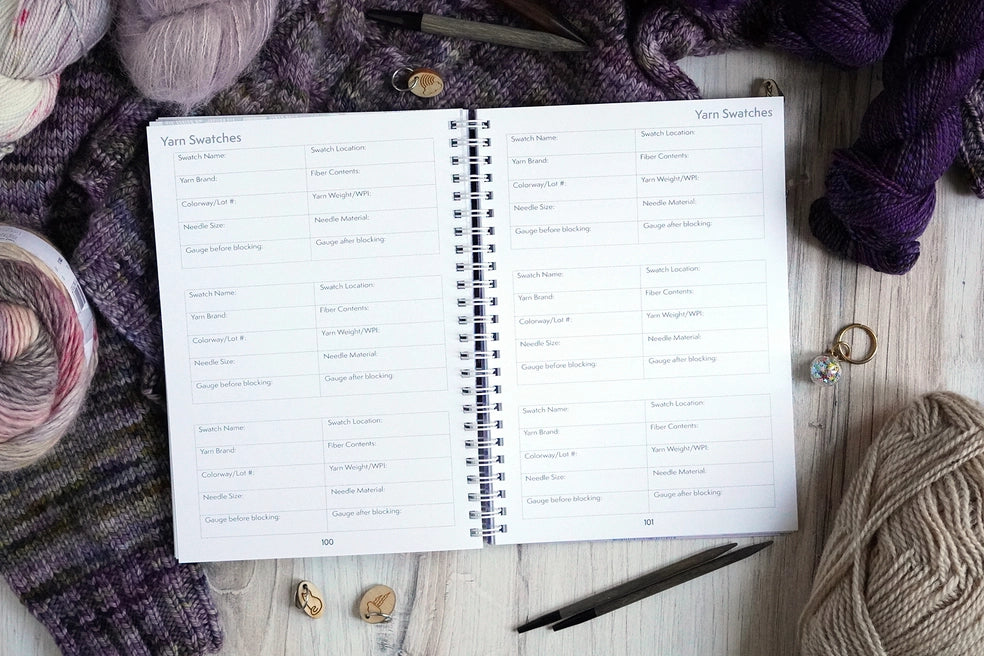 Yarn Swatches
Swatch Name: Swatch Location:
Yarn Brand: Fiber Contents:
Colorway/Lot #: Yarn Weight/WPI:
Needle Size: Needle Material:
Gauge before blocking: Gauge after blocking:
Swatch Name: Swatch Location:
Yarn Brand: Fiber Contents:
Colorway/Lot #: Yarn Weight/WPI:
Needle Size: Needle Material:
Gauge before blocking: Gauge after blocking:
Swatch Name: Swatch Location:
Yarn Brand: Fiber Contents:
Colorway/Lot #: Yarn Weight/WPI:
Needle Size: Needle Material:
Gauge before blocking: Gauge after blocking:
100
Yarn Swatches
Swatch Name: Swatch Location:
Yarn Brand: Fiber Contents:
Colorway/Lot #: Yarn Weight/WPI:
Needle Size: Needle Material:
Gauge before blocking: Gauge after blocking:
Swatch Name: Swatch Location:
Yarn Brand: Fiber Contents:
Colorway/Lot #: Yarn Weight/WPI:
Needle Size: Needle Material:
Gauge before blocking: Gauge after blocking:
Swatch Name: Swatch Location:
Yarn Brand: Fiber Contents:
Colorway/Lot #: Yarn Weight/WPI:
Needle Size: Needle Material:
Gauge before blocking: Gauge after blocking:
101